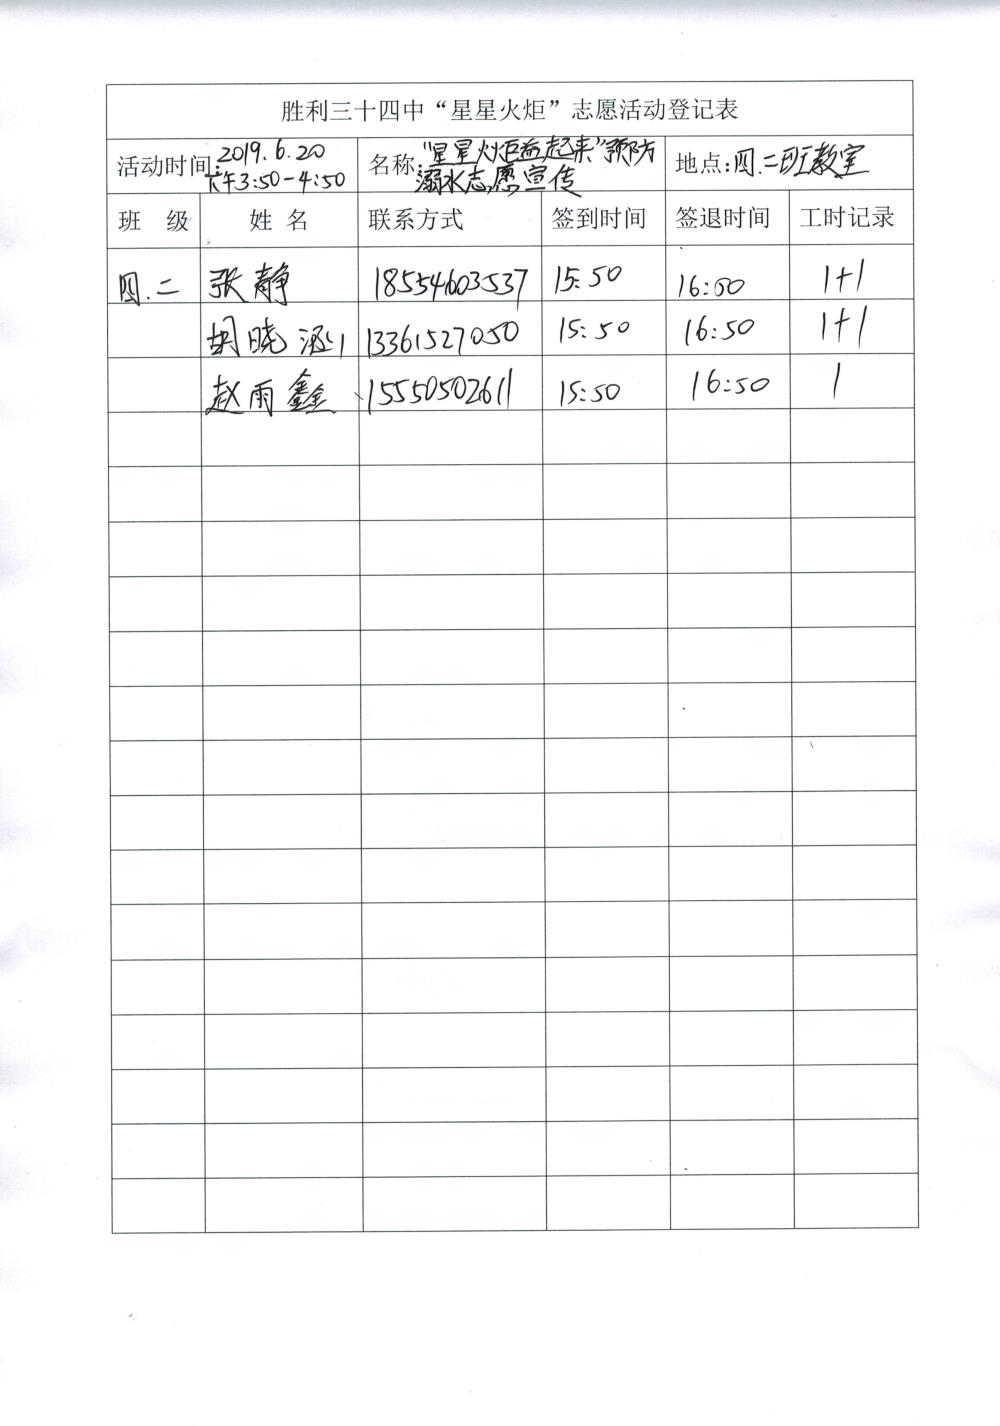 胜利三十四中“星星火炬”志愿活动登记表
活动时间:2019.6.20
下午3:50-4:50
名称:“星星火炬益起来”预防
溺水志愿宣传
地点:四.二班教室
班 级 姓 名 联系方式 签到时间 签退时间 工时记录
四.二 张静 18554603537 15:50 16:50 1+1
胡晓涵 13361527050 15:50 16:50 1+1
赵雨鑫 15550502611 15:50 16:50 1